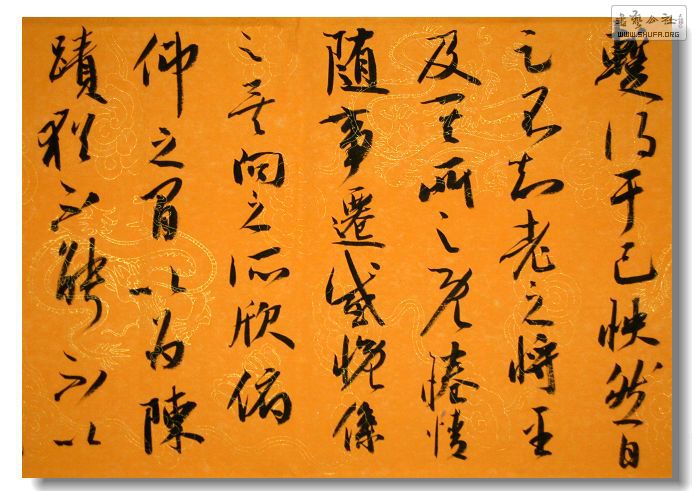 書藝公社
WWW.SHUFA.ORG
暫得于己怏然自
足不知老之將至
及其所之既惓情
随事遷感慨係
之矣向之所欣俯
仰之間以為陳
蹟猶不能不以